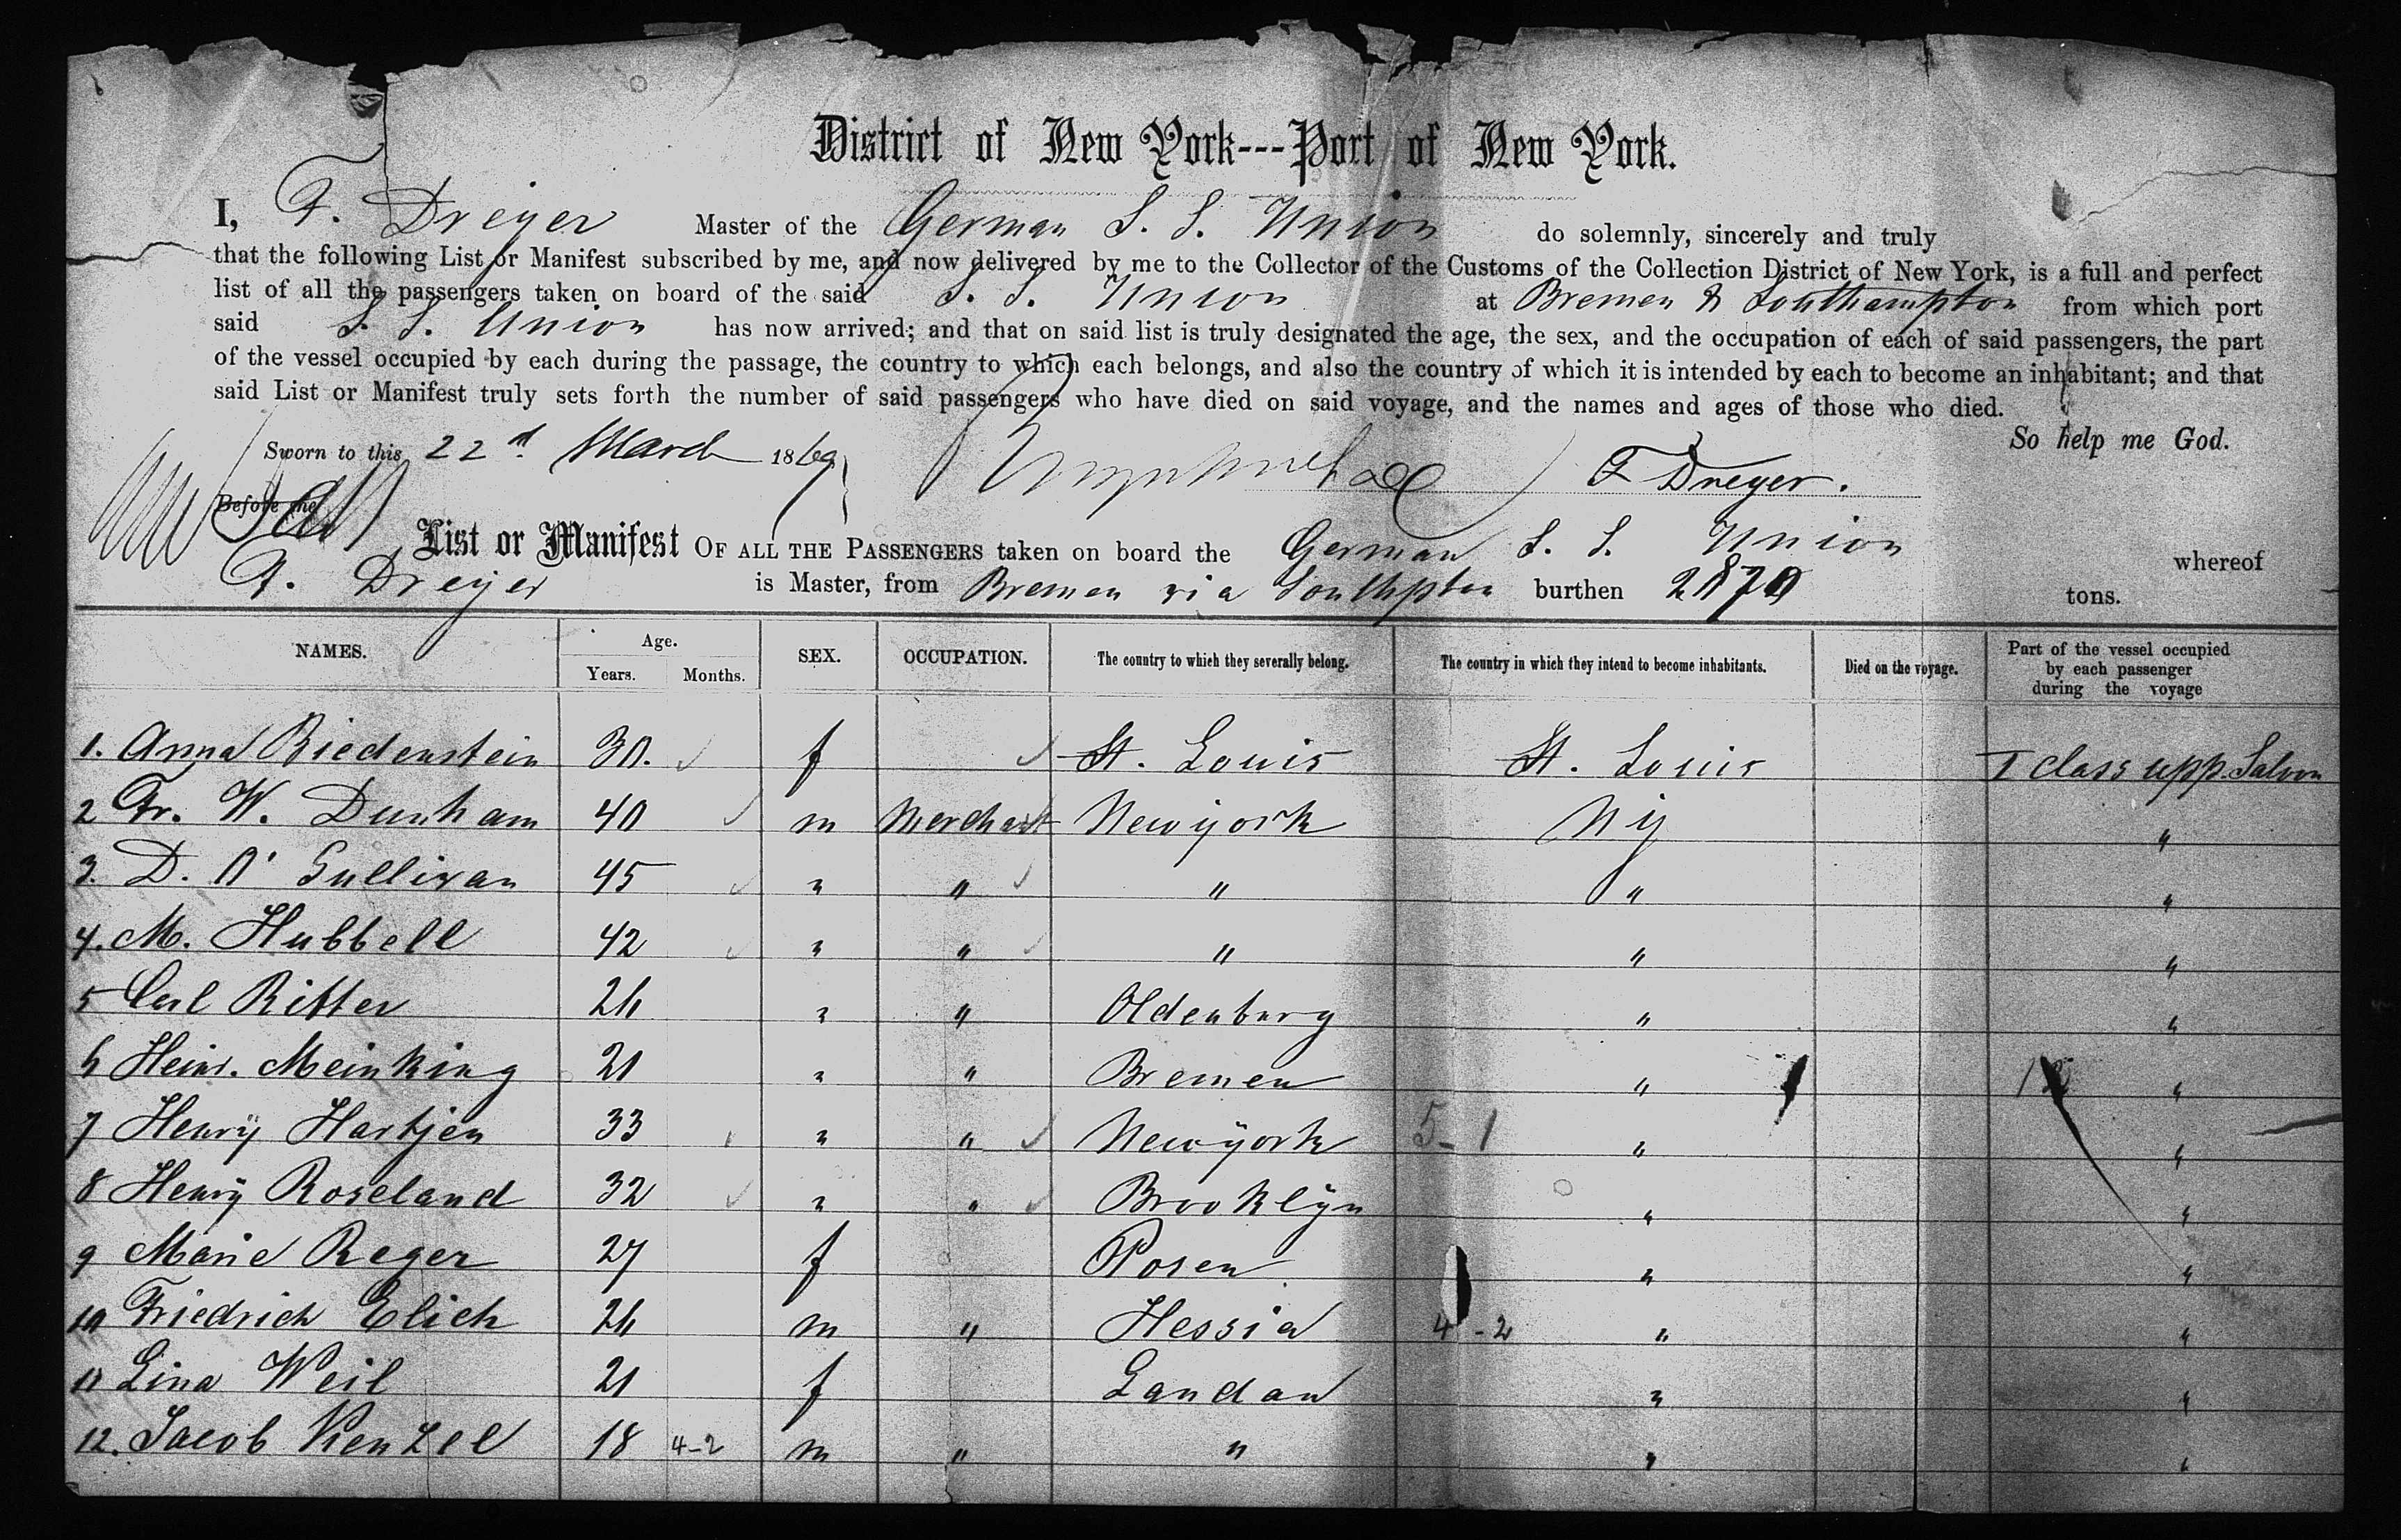 District of New York---Port of New York.
I, F. Dreyer Master of the German S. S. Union do solemnly, sincerely and truly
that the following List or Manifest subscribed by me, and now delivered by me to the Collector of the Customs of the Collection District of New York, is a full and perfect
list of all the passengers taken on board of the said S. S. Union at Bremen & Southampton from which port
said S. S. Union has now arrived; and that on said list is truly designated the age, the sex, and the occupation of each of said passengers, the part
of the vessel occupied by each during the passage, the country to which each belongs, and also the country of which it is intended by each to become an inhabitant; and that
said List or Manifest truly sets forth the number of said passengers who have died on said voyage, and the names and ages of those who died.
So help me God.
Sworn to this 22d March 1869 F Dreyer.
Before me
List or Manifest OF ALL THE PASSENGERS taken on board the German S. S. Union whereof
F. Dreyer is Master, from Bremen via Southpton burthen 2870 tons.
NAMES. Age. Years. Months. SEX. OCCUPATION. The country to which they severally belong. The country in which they intend to become inhabitants. Died on the voyage. Part of the vessel occupied by each passenger during the voyage
1. Anna Biedenstein 30. f St. Louis St. Louis I class upp. Saloon
2 Fr. W. Dunham 40 m Merchant Newyork NY "
3. D. O' Sullivan 45 " " " " "
4. M. Hubbell 42 " " " " "
5 Carl Ritter 26 " " Oldenburg " "
6 Heinr. Meinking 21 " " Bremen " "
7 Henry Hartjen 33 " " Newyork 5-1 " "
8 Henry Roseland 32 " " Brooklyn " "
9 Marie Reger 27 f Posen " "
10 Friedrich Elich 26 m " Hessia 4-2 " "
11 Lina Weil 21 f Landau " "
12. Jacob Kenzel 18 4-2 m " " " "